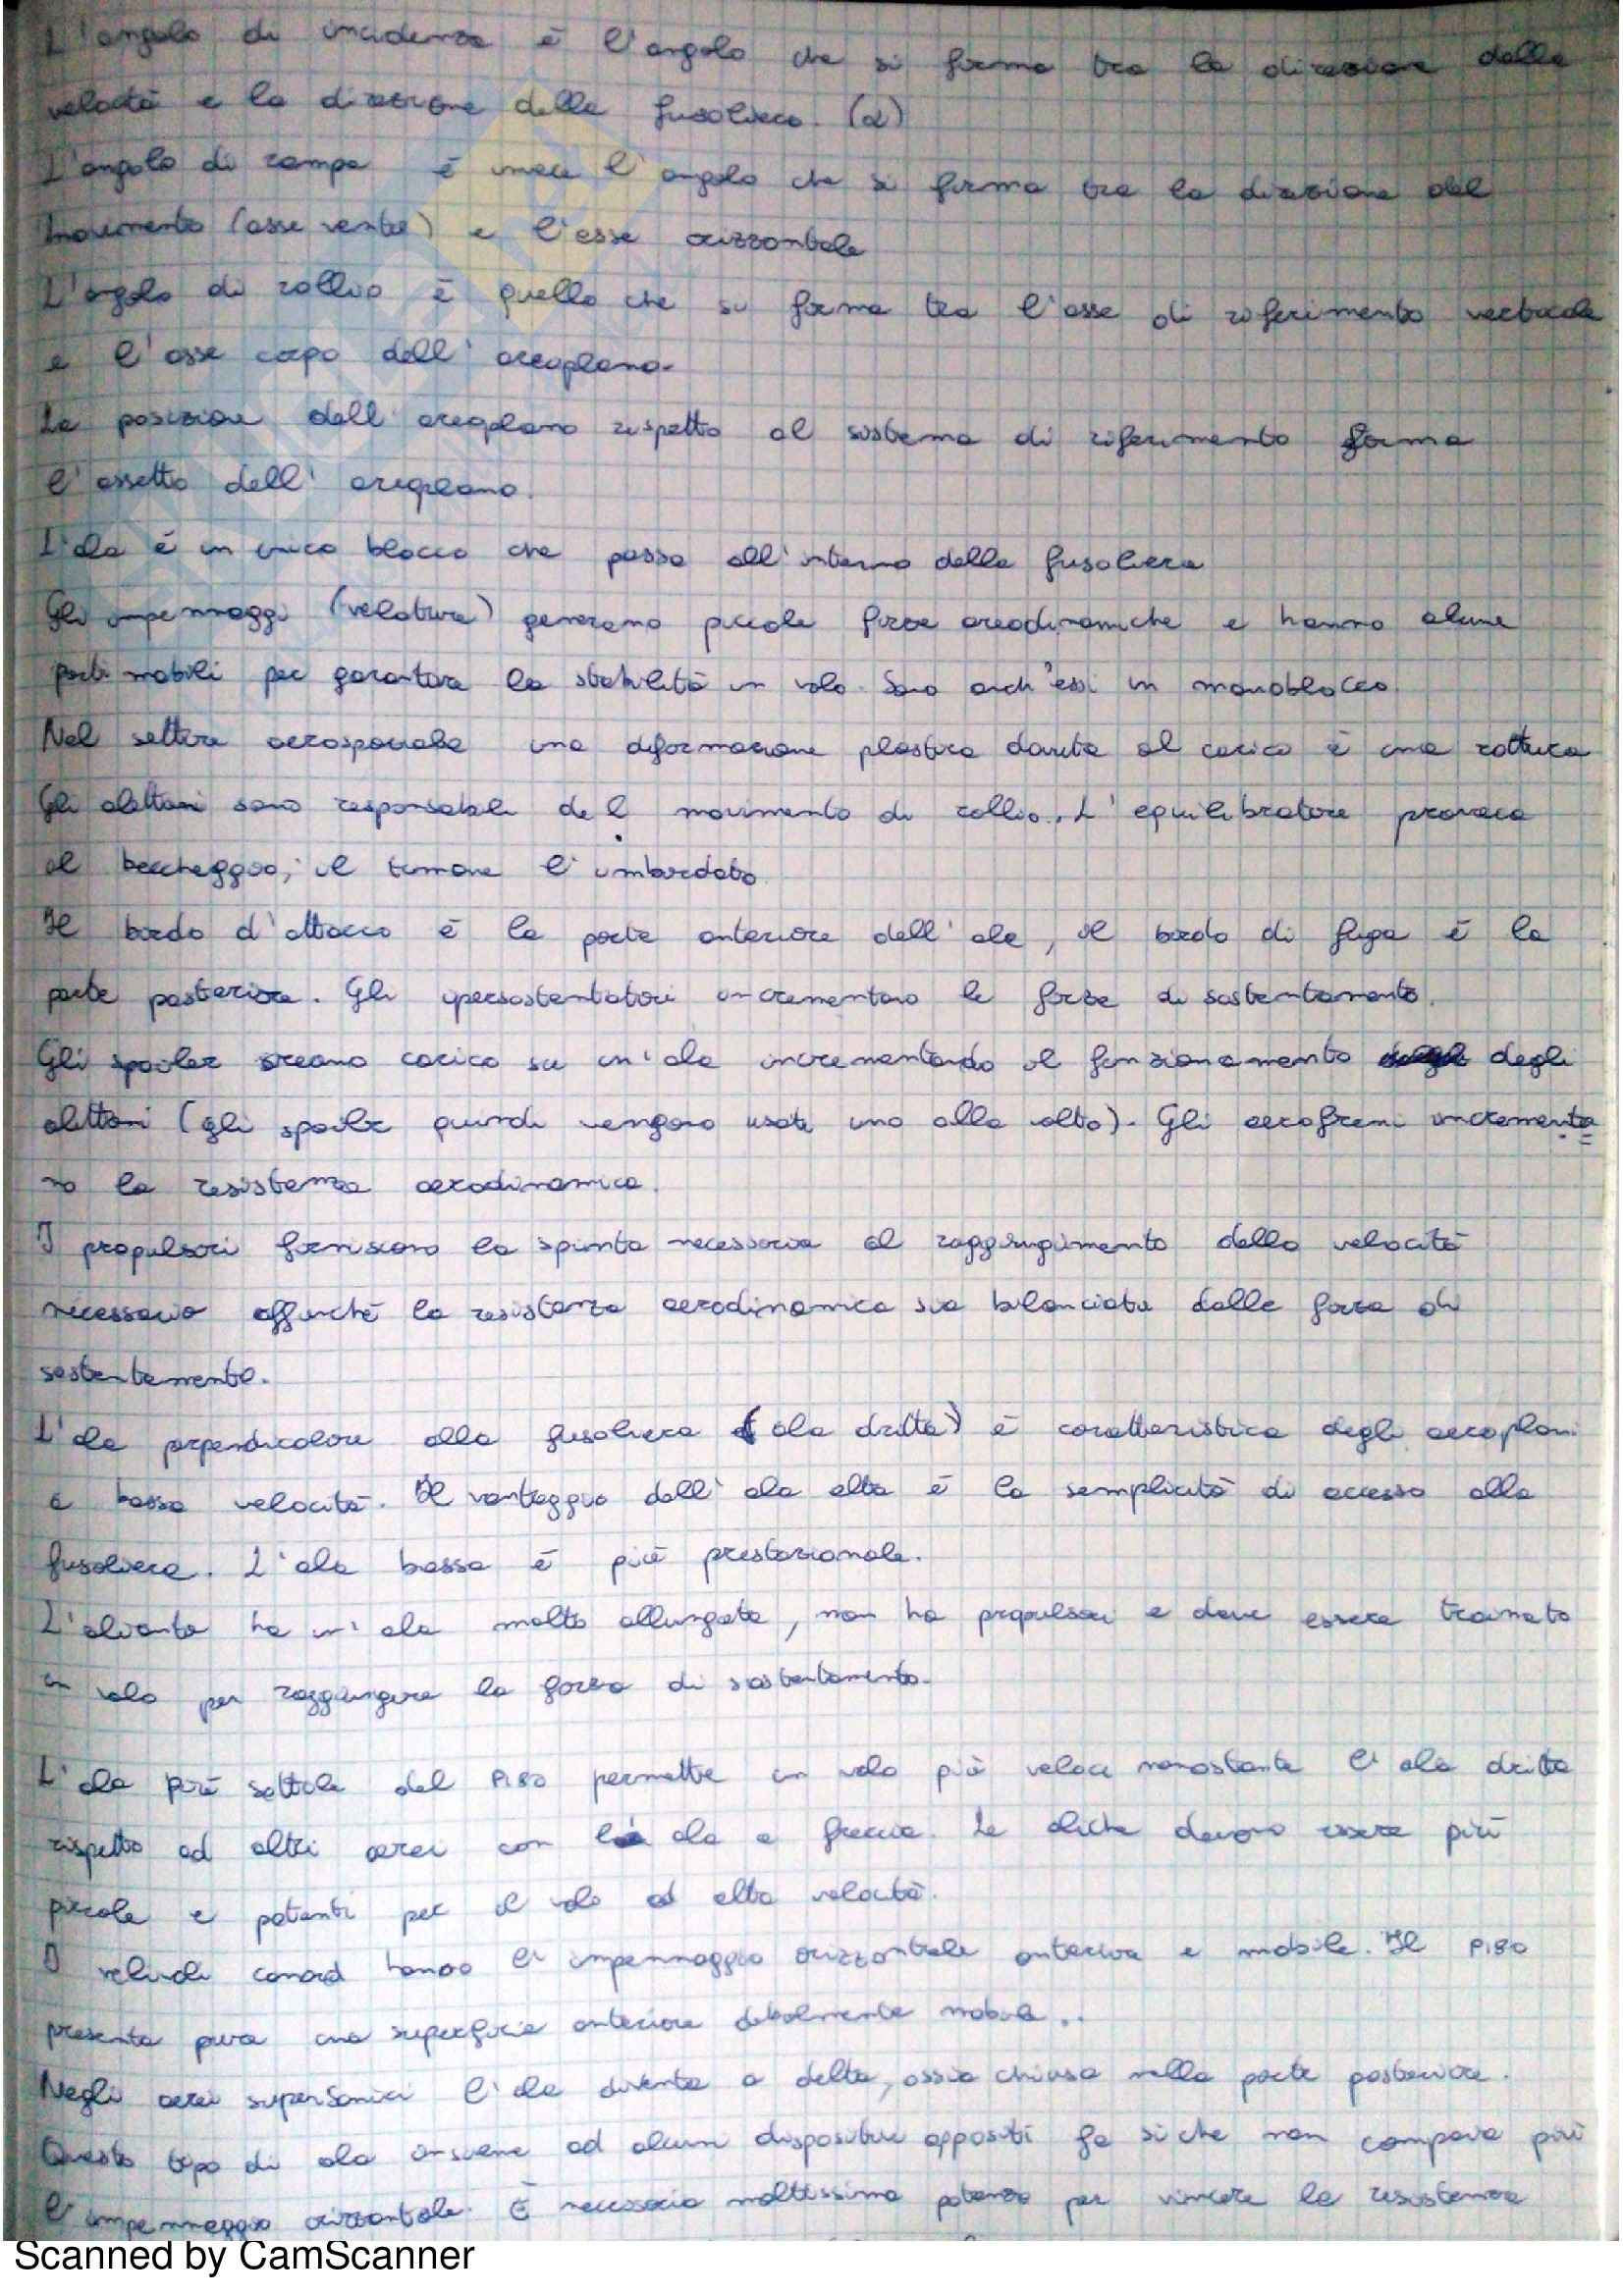 L'angolo di incidenza è l'angolo che si forma tra la direzione della
velocità e la direzione della fusoliera. (α)
L'angolo di rampa è invece l'angolo che si forma tra la direzione del
movimento (asse vento) e l'asse orizzontale
L'angolo di rollio è quello che si forma tra l'asse di riferimento verticale
e l'asse corpo dell'areoplano.
La posizione dell'areoplano rispetto al sistema di riferimento forma
l'assetto dell'areoplano.
L'ala è un unico blocco che passa all'interno della fusoliera
Gli impennaggi (velatura) generano piccole forze areodinamiche e hanno alcune
parti mobili per garantire la stabilità in volo. Sono anch'essi in monoblocco.
Nel settore aerospaziale una deformazione plastica dovuta al carico è una rottura
Gli alettoni sono responsabili del movimento di rollio. L'equilibratore provoca
il beccheggio, il timone l'imbardata.
Il bordo d'attacco è la parte anteriore dell'ala, il bordo di fuga è la
parte posteriore. Gli ipersostentatori incrementano le forze di sostentamento.
Gli spoiler creano carico su un'ala incrementando il funzionamento degli
alettoni (gli spoiler quindi vengono usati uno alla volta). Gli aerofreni incrementa=
no la resistenza aerodinamica.
I propulsori forniscono la spinta necessaria al raggiungimento della velocità
necessario affinché la resistenza aerodinamica sia bilanciata dalla forza di
sostentamento.
L'ala perpendicolare alla fusoliera (ala dritta) è caratteristica degli aeroplani
a bassa velocità. Il vantaggio dell'ala alta è la semplicità di accesso alla
fusoliera. L'ala bassa è più prestazionale.
L'aliante ha un'ala molto allungata, non ha propulsori e deve essere trainato
in volo per raggiungere la forza di sostentamento.
L'ala più sottile del P180 permette un volo più veloce nonostante l'ala dritta
rispetto ad altri aerei con ala a freccia. Le eliche devono essere più
piccole e potenti per il volo ad alta velocità.
I velivoli canard hanno l'impennaggio orizzontale anteriore e mobile. Il P180
presenta pure una superficie anteriore debolmente mobile..
Negli aerei supersonici l'ala diventa a delta, ossia chiusa nella parte posteriore.
Questo tipo di ala insieme ad alcuni dispositivi appositi fa sì che non compaia più
l'impennaggio orizzontale. È necessaria moltissima potenza per vincere la resistenza
Scanned by CamScanner